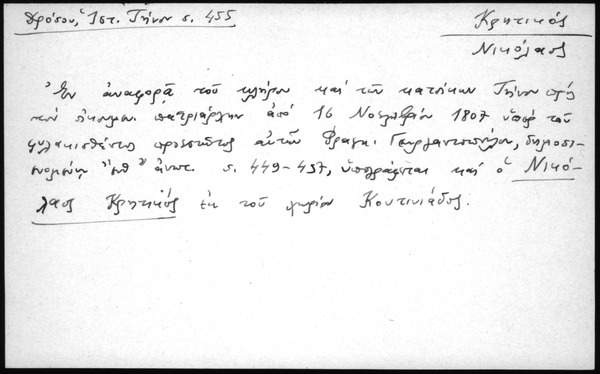 Δρόσου, Ἱστ. Τήνου σ. 455
Κρητικός
Νικόλαος
Ἐν ἀναφορᾷ τοῦ κλήρου καί τῶν κατοίκων Τήνου πρός
τόν οἰκουμ. πατριάρχην ἀπό 16 Νοεμβρίου 1807 ὑπέρ τοῦ
φυλακισθέντος προεστῶτος αὐτῶν Φραγκ. Γεωργαντοπούλου, δημοσι-
ευομένῃ ἐνθ' ἀνωτ. σ. 449-457, ὑπογράφεται καί ὁ Νικό-
λαος Κρητικός ἐκ τοῦ χωρίου Κουτινιάδος.